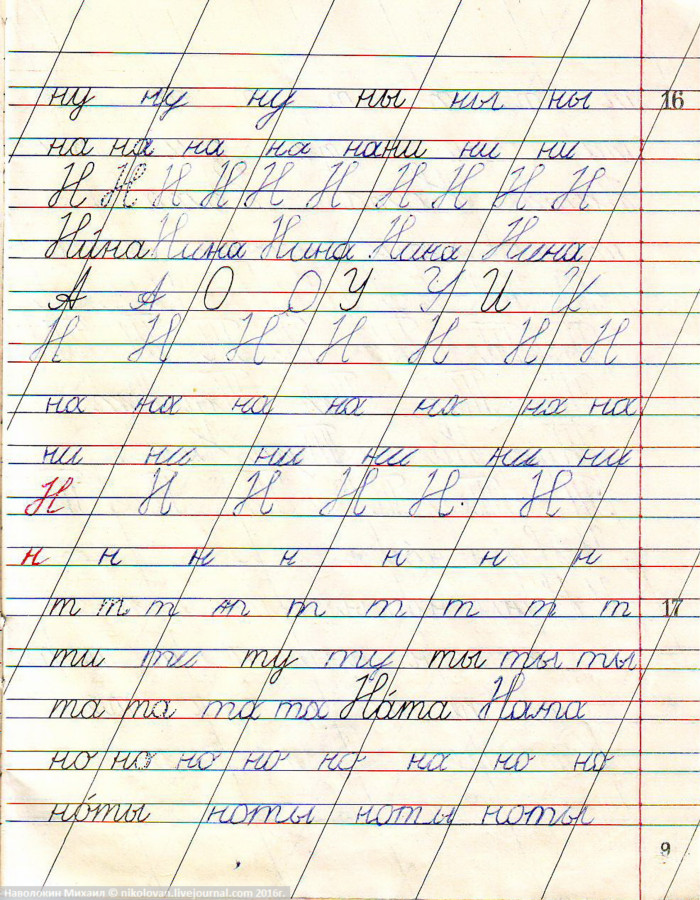 ну ну ну ны ны ны 16
на на на на нани ни ни
Н Н Н Н Н Н Н Н Н Н
Ни́на Нина Нина Нина Нина
А А О О У У И И
Н Н Н Н Н Н Н
на на на на на на на
ни ни ни ни ни ни
Н Н Н Н Н Н
н н н н н н н
т т т т т т т т т 17
ти ти ту ту ты ты ты
та та та та На́та Ната
но но но но но но но но
но́ты ноты ноты ноты
9
Наволокин Михаил © nikolovau.livejournal.com 2016г.